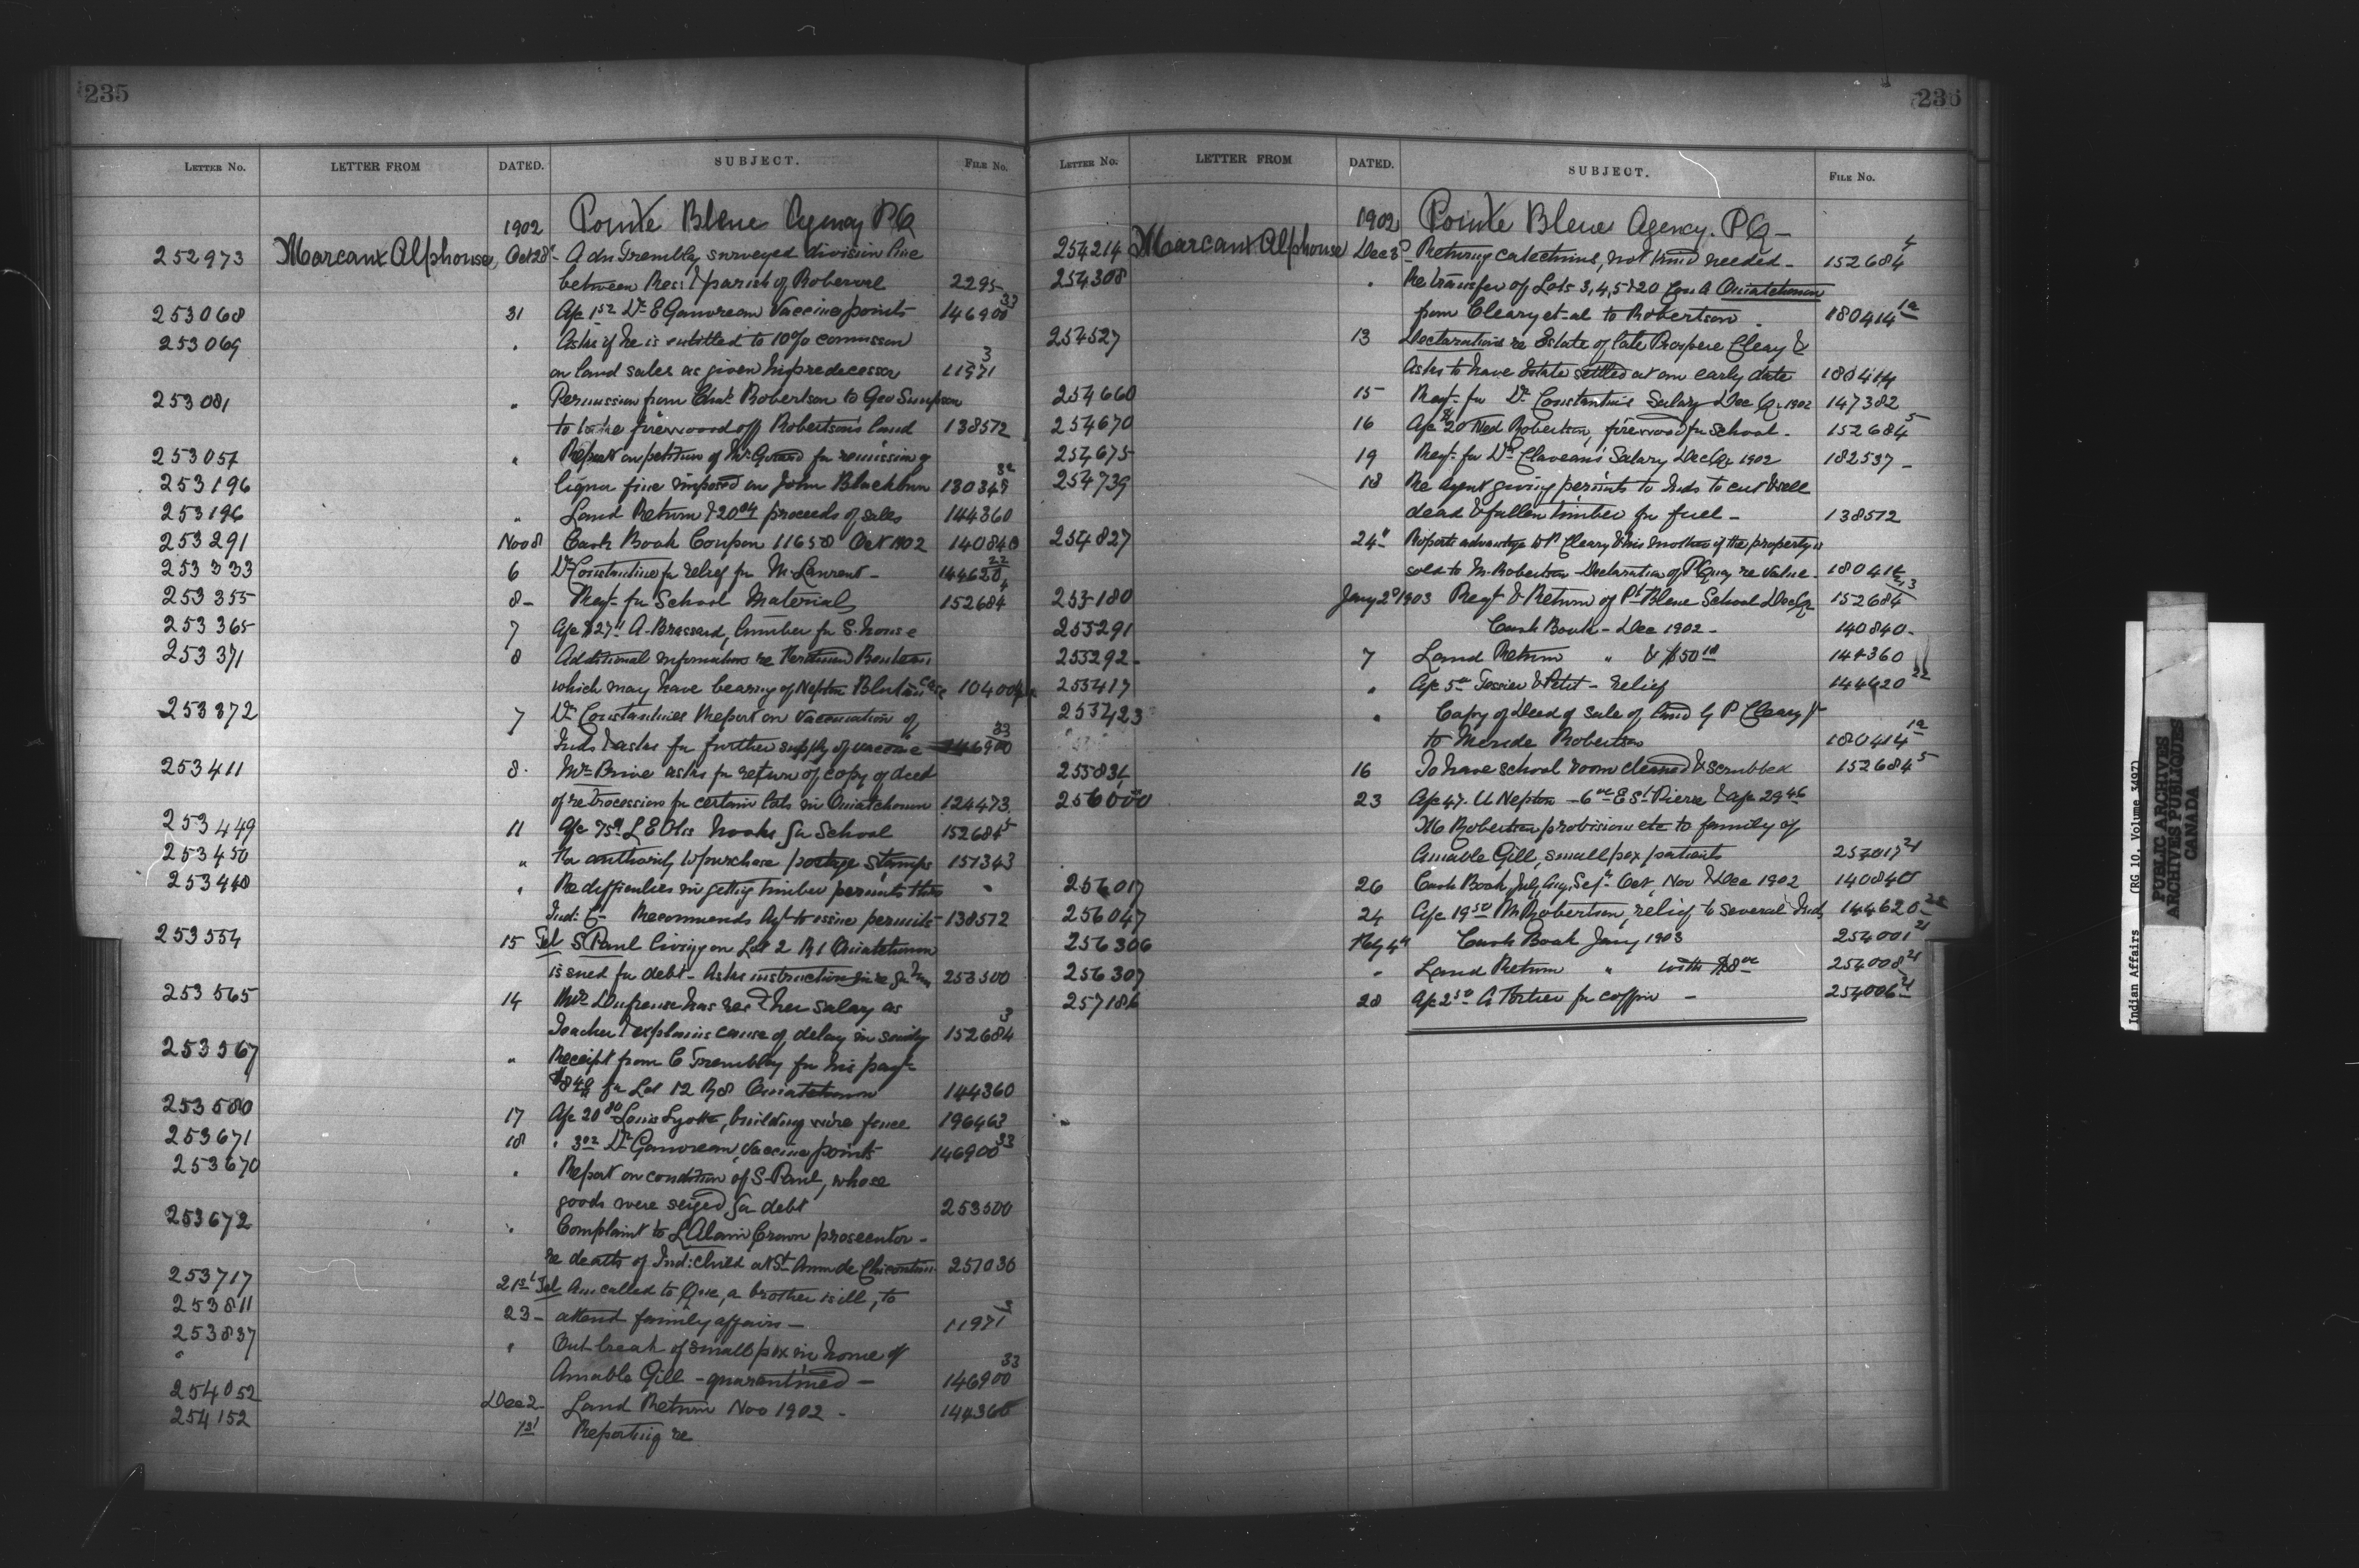 235
LETTER NO. LETTER FROM DATED. SUBJECT. FILE NO.
1902 Pointe Bleue Agency P.Q.
252973 Marcaux Alphonse Oct 28 Adn Trembley surveyed division line
between Res: & parish of Roberval 2295
253068 31 A/c 1.52 Dr E Gauvreau Vaccine points 146900 33
253069 " Asks if he is entitled to 10% commission
on land sales as given his predecessor 11971 3
253081 " Permission from Chas Robertson to Geo Simpson
to take firewood off Robertson's land 138512
253057 " Report on petition of Mr Girard for remission of
253196 liquor fine imposed on John Blackburn
253196 " Land Return & 20.04 proceeds of sales 144360
253291 Nov 8 Cash Book Coupon 11658 Oct 1902 140840
253333 6 Dr Constantine for relief for M. Laurent - 144620 22
253355 8 - Reqt for School Material 152684
253365 7 A/c $27 A. Brassard, lumber for S. house
253371 8 Additional information re
which may have bearing of Nepton case
253372 7 Dr Constantines Report on vaccination of
Inds & asks for further supply of vaccine 146900 33
253411 8. Mr Brive asks for return of copy of deed
of retrocession for certain lots in Ouiatchouan 124473
253449 11 A/c 75¢ L E Otis hooks for School 152684 5
253450 " For authority to purchase postage stamps 151343
253448 " Re difficulties in getting timber permits thro
Ind: C- Recommends Agt to issue permits 138512
253554 15 Tel S Paul living on Lot 2 R 1 Ouiatchouan
is sued for debt - Asks instruction 253500
253565 14 Mrs Dufresne has recd her salary as
Teacher & explains cause of delay in sending 152684 3
253567 " Receipt from C Trembley for his payt
for Lot 12 R 8 Ouiatchouan 144360
253580 17 A/c 20.80 Louis Lyotte, building wire fence 196463
253671 18 " 3.02 Dr Gauvreau, Vaccine points 146900 33
253670 " Report on condition of S. Paul, whose
goods were seized for debt 253500
253672 " Complaint to L Alain Crown prosecutor -
re death of Ind: child at St Anne de Chicoutimi 251036
253717 21st Tel Am called to Que, a brother is ill, to
253811 23 - attend family affairs - 11971 3
253837 " Outbreak of smallpox in home of
" Amable Gill - quarantined - 146900 33
254052 Dec 2 Land Return Nov 1902 - 144360
254152 1st Reporting re
236
LETTER NO. LETTER FROM DATED. SUBJECT. FILE NO.
1902 Pointe Bleue Agency. P.Q -
254214 Marcaux Alphonse Dec 3 - Returns catechims, not kind needed - 152684 4
254308 " Re transfer of Lots 3, 4, 5 & 20 Con A Ouiatchouan
from Cleary et-al to Robertson 180414 1a
254527 13 Declarations re Estate of late Prospere Cleary &
Asks to have Estate settled at an early date 180414
254660 15 Reqt for Dr Constantin's Salary Dec Qr 1902 147382
254670 16 A/c 20 Ned Robertson, firewood for school - 152684 5
254675 19 Reqt for Dr Claveau's Salary Dec Qr 1902 182537 -
254739 18 Re Agent giving permits to Inds to cut & sell
dead & fallen timber for fuel - 138512
254827 24 " Reports advantage to P Cleary & his mother if the property is
sold to M. Robertson - Declaration of re value -
255180 Jany 2 1903 Reqt & Return of Pt Bleue School Dec Qr 152684
255291 Cash Book - Dec 1902 - 140840 -
255292 - 7 Land Return " & $50.10 144360
255417 " A/c 5.00 Tessier & Petit - relief 144620 22
255423 " Copy of Deed of sale of land by P Cleary Jr
to Meride Robertson 180414 1a
255834 16 To have school room cleaned & scrubbed 152684 5
256000 23 A/c 47. U Nepton - 6.00 E St Pierre & A/c 29.46
Robertson provisions etc to family of
Amable Gill, smallpox patients
256017 26 Cash Book, July, Aug, Sept, Oct, Nov & Dec 1902 140840
256047 24 A/c 19.50 M Robertson, relief to several Inds 144620 22
256306 Feby 4th Cash Book Jany 1903 254001 21
256307 " Land Return " with $8.00 254008 21
257186 28 A/c 2.50 A Portier for coffin - 254006 21
Indian Affairs (RG 10, Volume 3497)
PUBLIC ARCHIVES
ARCHIVES PUBLIQUES
CANADA